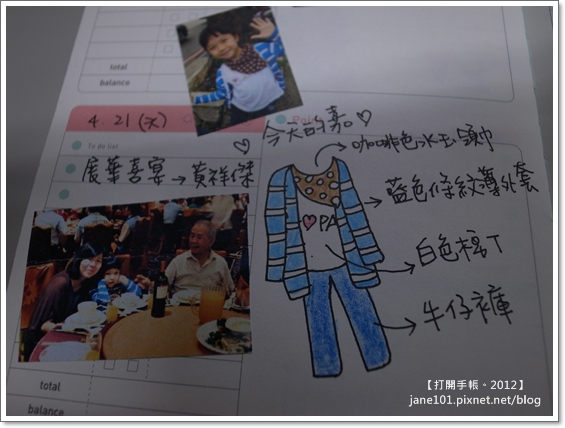 total
balance
4. 21 (水)
To do list
展華喜宴→黃祥傑
今天的嘉。♡
咖啡色水玉頭巾
藍色條紋薄外套
♡PA
白色棉T
牛仔褲
total
balance
【打開手帳。2012】
jane101.pixnet.net/blog